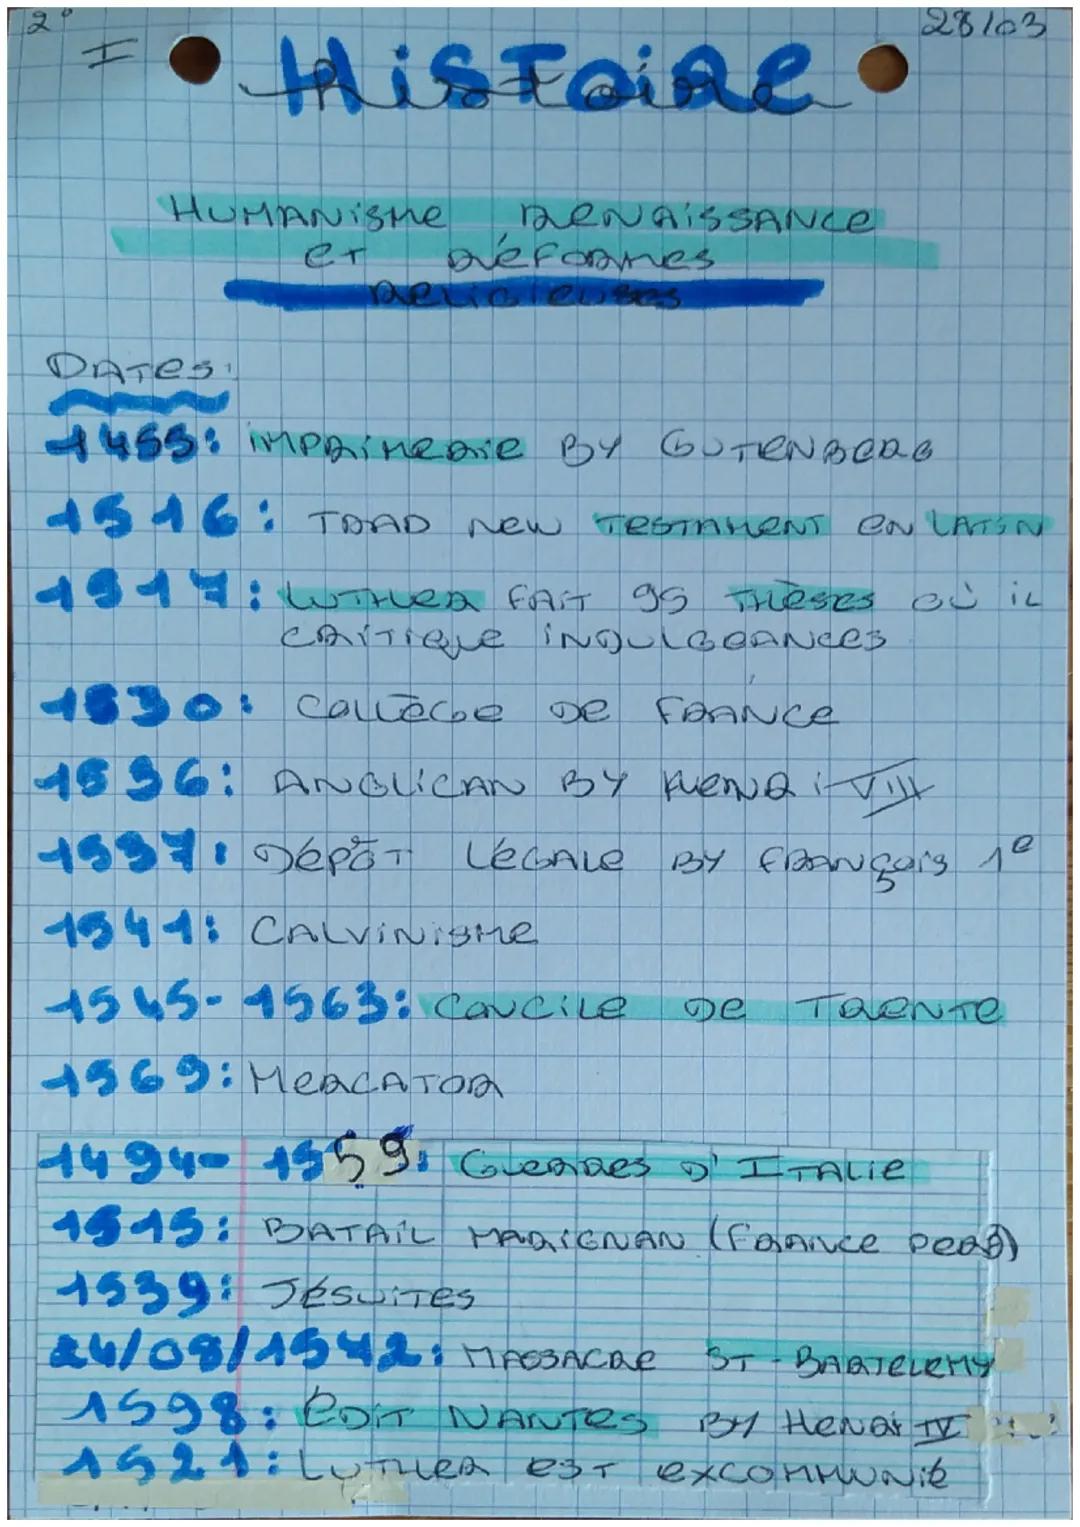 2°
I
28/03
Histoire
HUMANiSME RENAiSSANCE
et RÉFORMES
ReLiGieUSES
DATES:
1455: iMPRiMERie BY GUTENBERG
1516: TRAD NEW TESTAMENT EN LATIN
1517: LUTHER FAIT 95 THÈSES OÙ iL
CRITIQUE INDULGEANCES
1530: COLLÈGE DE FRANCE
1536: ANGLICAN BY HENRI VIII
1537: DÉPÔT LÉGALE BY FRANÇOIS 1e
1541: CALVINISME
1545-1563: CONCILE DE TRENTE
1569: MERCATOR
1494-1559: GUERRES D'ITALIE
1515: BATAIL MARIGNAN (FRANCE PERD)
1539: JÉSUITES
24/08/1572: MASSACRE ST-BARTELEMY
1598: EDIT NANTES BY HENRI IV
1521: LUTHER EST EXCOMMUNIÉ